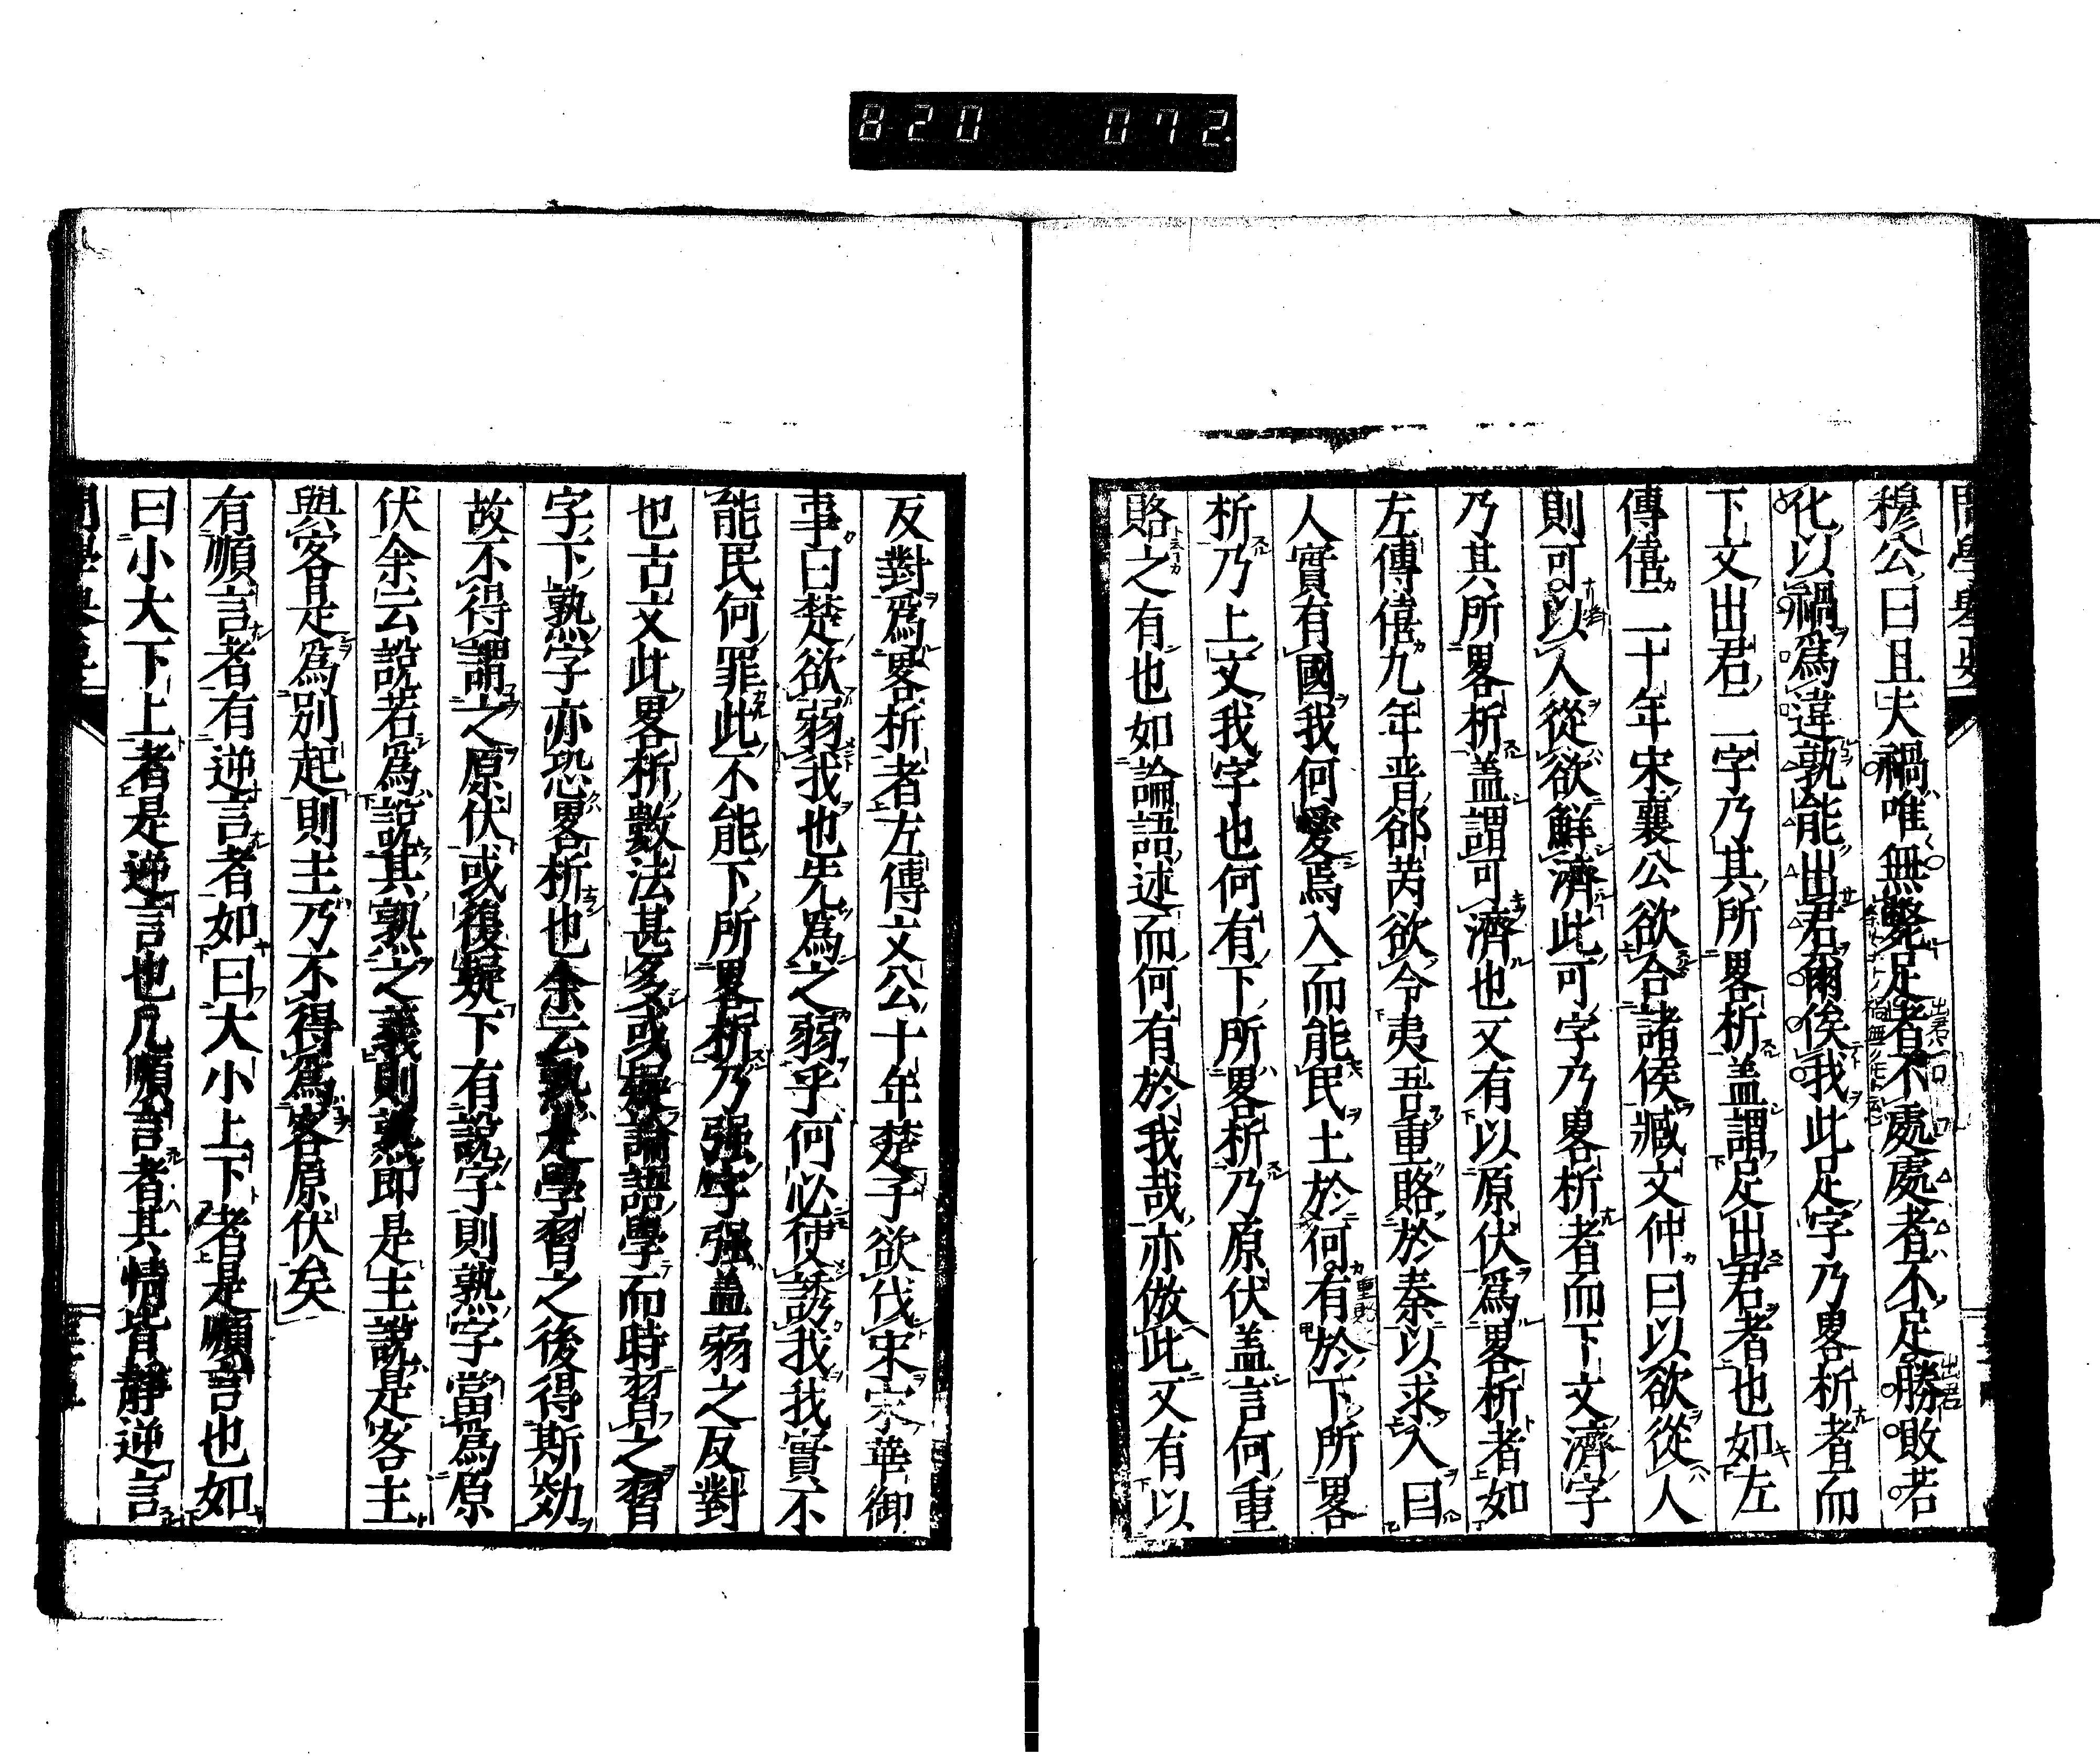 820 072
穆公曰且夫禍唯無斃足者不處處者不足勝敗若
化以禍爲違孰能出君爾俟我此足字乃畧析者而
下文出君二字乃其所畧析盖謂足出君者也如左
傳僖二十年宋襄公欲合諸侯臧文仲曰以欲從人
則可以人從欲鮮濟此可字乃畧析者而下文濟字
乃其所畧析盖謂可濟也又有以原伏爲畧析者如
左傳僖九年晋郤芮欲令夷吾重賂於秦以求入曰
人實有國我何愛焉入而能民土於何有於下所畧
析乃上文我字也何有下所畧析乃原伏盖言何重
賂之有也如論語述而何有於我哉亦倣此又有以
反對爲畧析者左傳文公十年楚子欲伐宋宋華御
事曰楚欲弱我也先爲之弱乎何必使誘我我實不
能民何罪此不能下所畧析乃强字强盖弱之反對
也古文此畧析數法甚多或疑論語學而時習之習
字下熟字亦恐畧析也余云熟是學習之後得斯効
故不得謂之原伏或復疑下有說字則熟字當爲原
伏余云說若爲說其熟之義則熟即是主說是客主
與客是爲別起則主乃不得爲客原伏矣
有順言者有逆言者如曰大小上下者是順言也如
曰小大下上者是逆言也凡順言者其情皆靜逆言